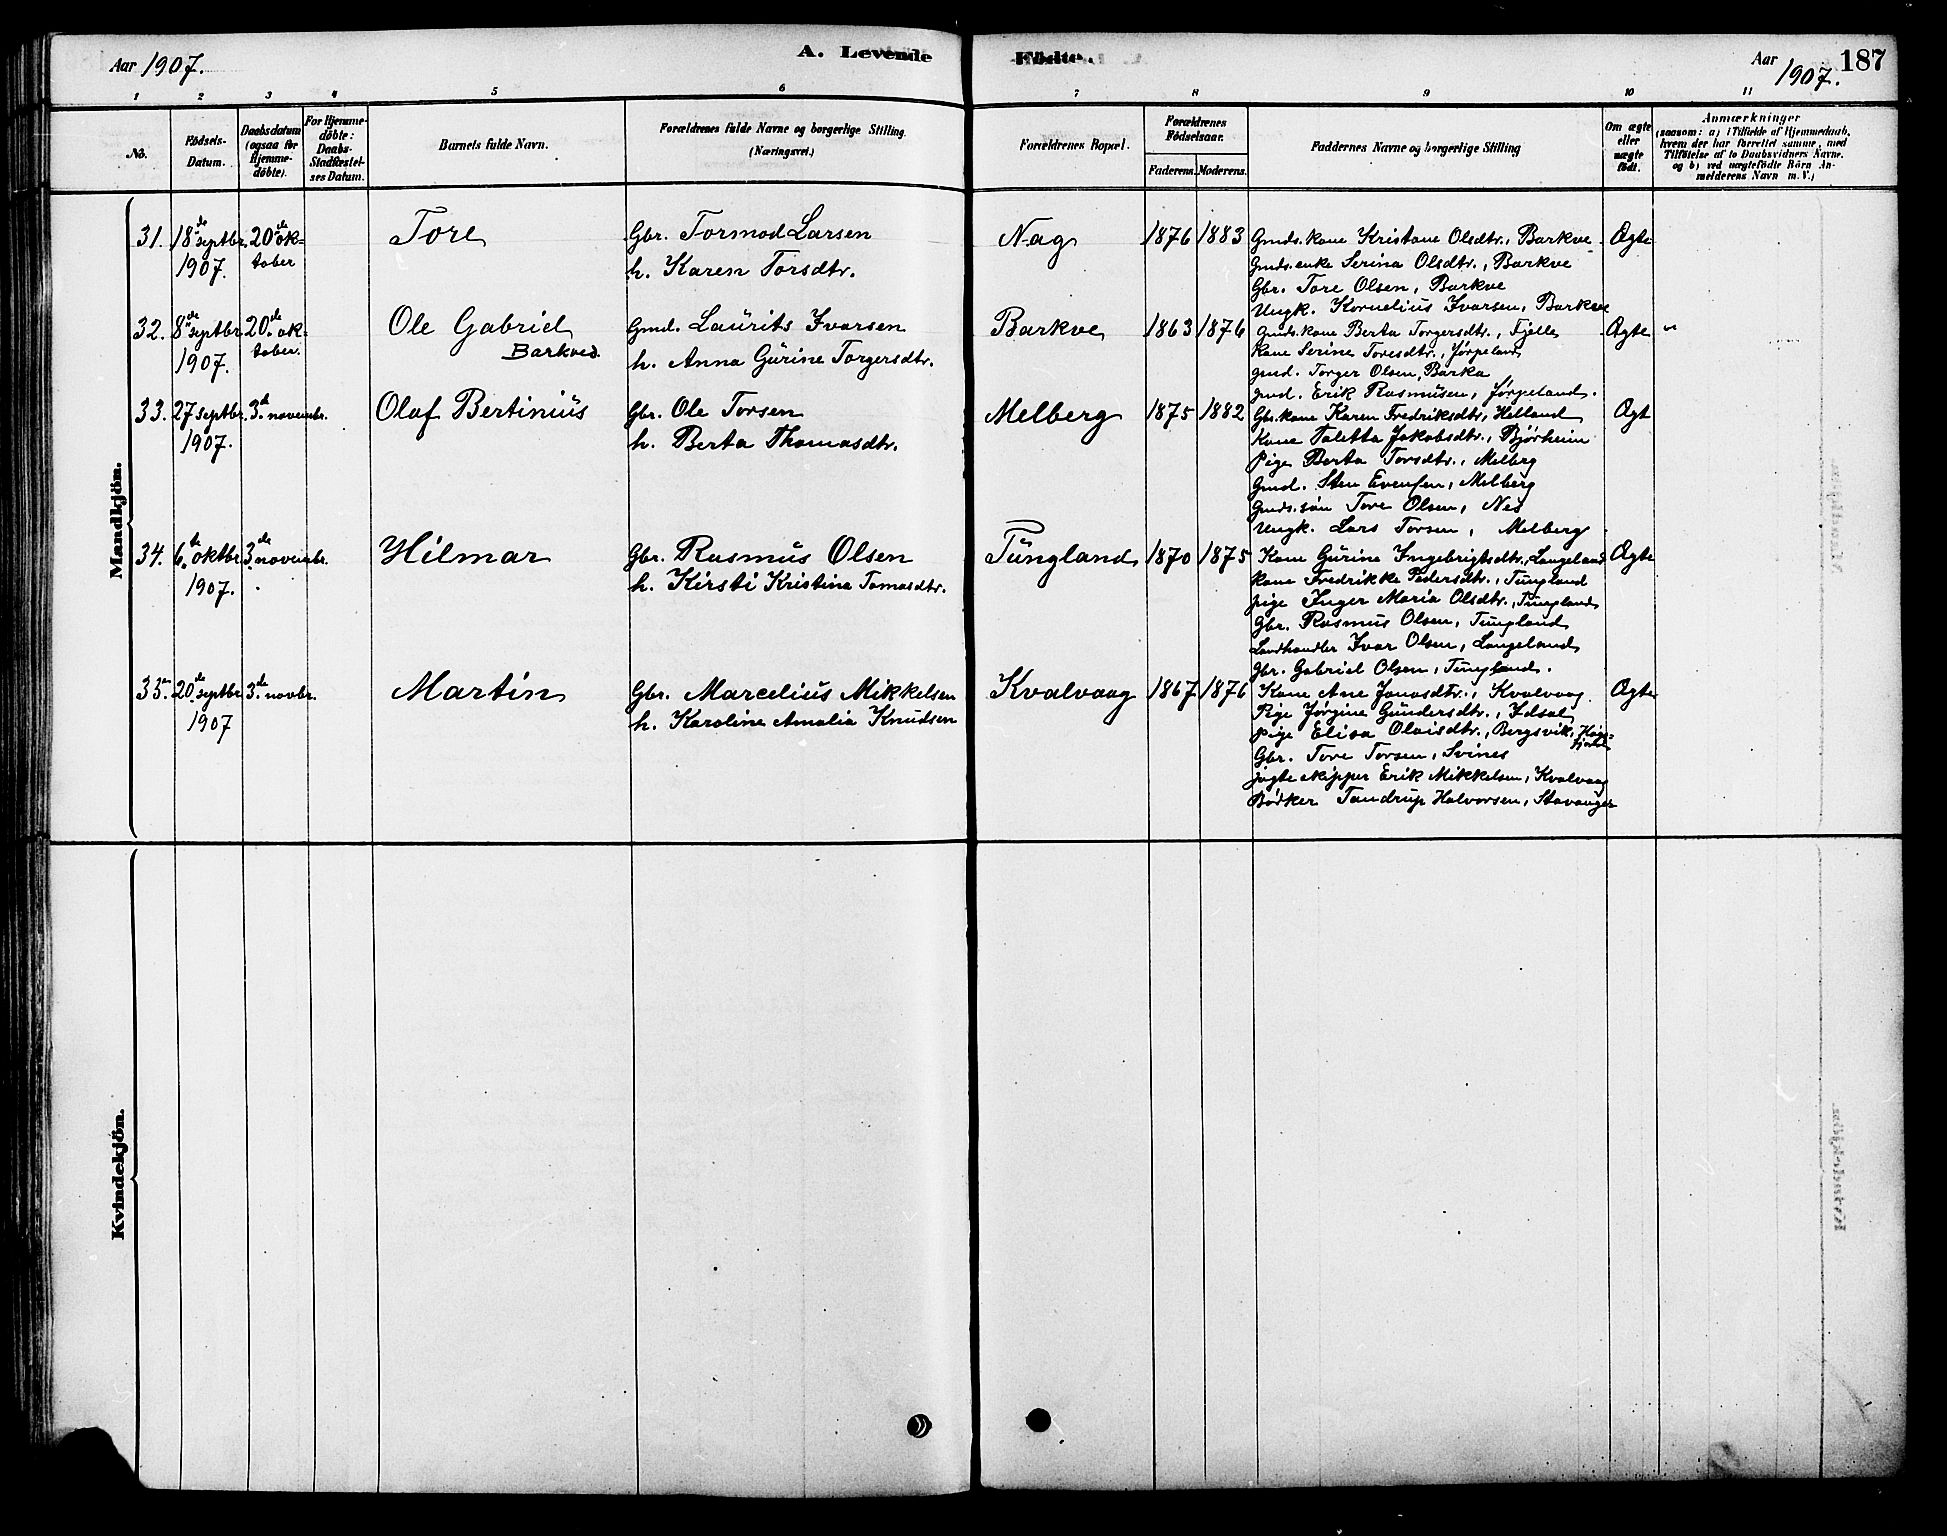 Aar 1907.
A. Levende
Födte.
Aar 1907.
187
1 2 3 4 5 6 7 8 9 10 11
No.
Födsels-
Datum.
Daabsdatum
(ogsaa for
Hjemme-
döbte).
For Hjemme-
döbte:
Daabs-
Stadfæstel-
ses Datum.
Barnets fulde Navn.
Forældrenes fulde Navne og borgerlige Stilling.
(Næringsvei.)
Forældrenes Bopæl.
Forældrenes
Födselsaar.
Faderens. Moderens.
Faddernes Navne og borgerlige Stilling
Om ægte
eller
uægte
födt.
Anmærkninger
(saasom: a) i Tilfælde af Hjemmedaab,
hvem der har forrettet samme, med
Tilföielse af to Daabsvidners Navne.
og b) ved uægtefödte Börn An-
melderens Navn m. V.)
Mandkjön.
31. 18de septbr. 1907.
20de ok-
tober
Tore
Gbr. Tormod Larsen
h. Karen Torsdtr.
Nag
1876 1883
Gmds. kone Kristane Olsdtr., Barkve
Gmds. enke Serina Olsdtr., Barkve
Gbr. Tore Olsen, Barkve
Ungk. Kornelius Ivarsen, Barkve
Ægte
32. 8de septbr. 1907.
20de ok-
tober.
Ole Gabriel
Barkved
Gmd. Laurits Ivarsen
h. Anna Gurine Torgersdtr.
Barkve
1863 1876
Gmds. kone Berta Torgersdtr., Fjelle
Kone Serine Toresdtr., Jørpeland
gmd. Torger Olsen, Barka
gmd. Erik Rasmusen, Jørpeland.
Ægte "
33. 27 septbr. 1907.
3de novembr.
Olaf Bertinius
Gbr. Ole Torsen
h. Berta Thomasdtr.
Melberg
1875 1882
Gbr. kone Karen Fredriksdtr., Helland
Kone Taletta Jakobsdtr., Bjørheim
Pige Berta Torsdtr., Melberg
Gmd. Sten Evensen, Melberg
Gmds. søn Tore Olsen, Nes
Ungk. Lars Torsen, Melberg
Ægt
34. 6de oktbr. 1907.
3de novembr.
Hilmar
Gbr. Rasmus Olsen
h. Kirsti Kristina Tomasdtr.
Tungland
1870 1875
Kone Gurine Ingebrigtsdtr., Langeland
kone Fredrikke Pedersdtr., Tungland
pige Inger Maria Olsdtr., Tungland
Gbr. Rasmus Olsen, Tungland
Landhandler Ivar Olsen, Langeland
Gbr. Gabriel Olsen, Tungland.
Ægte
35. 20de septbr. 1907
3de novbr.
Martin
Gbr. Marcelius Mikkelsen
h. Karoline Amalia Knudsen
Kvalvaag
1867 1876
Kone Ane Jonasdtr., Kvalvaag
Pige Jørgine Gundersdtr., Idsal
pige Elisa Olaisdtr., Bergsvik,
Gbr. Tore Torsen, Svines
jagte skipper Erik Mikkelsen, Kvalvaag
Bødker Tandrup Halvorsen, Stavanger
Ægte
Kvindekjön.